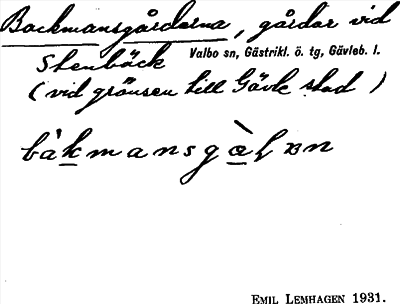 Backmansgårdarna, gårdar vid
Stenbäck Valbo sn, Gästrikl. ö. tg, Gävleb. l.
(vid gränsen till Gävle stad)
bàkmansgàɭɐn
EMIL LEMHAGEN 1931.